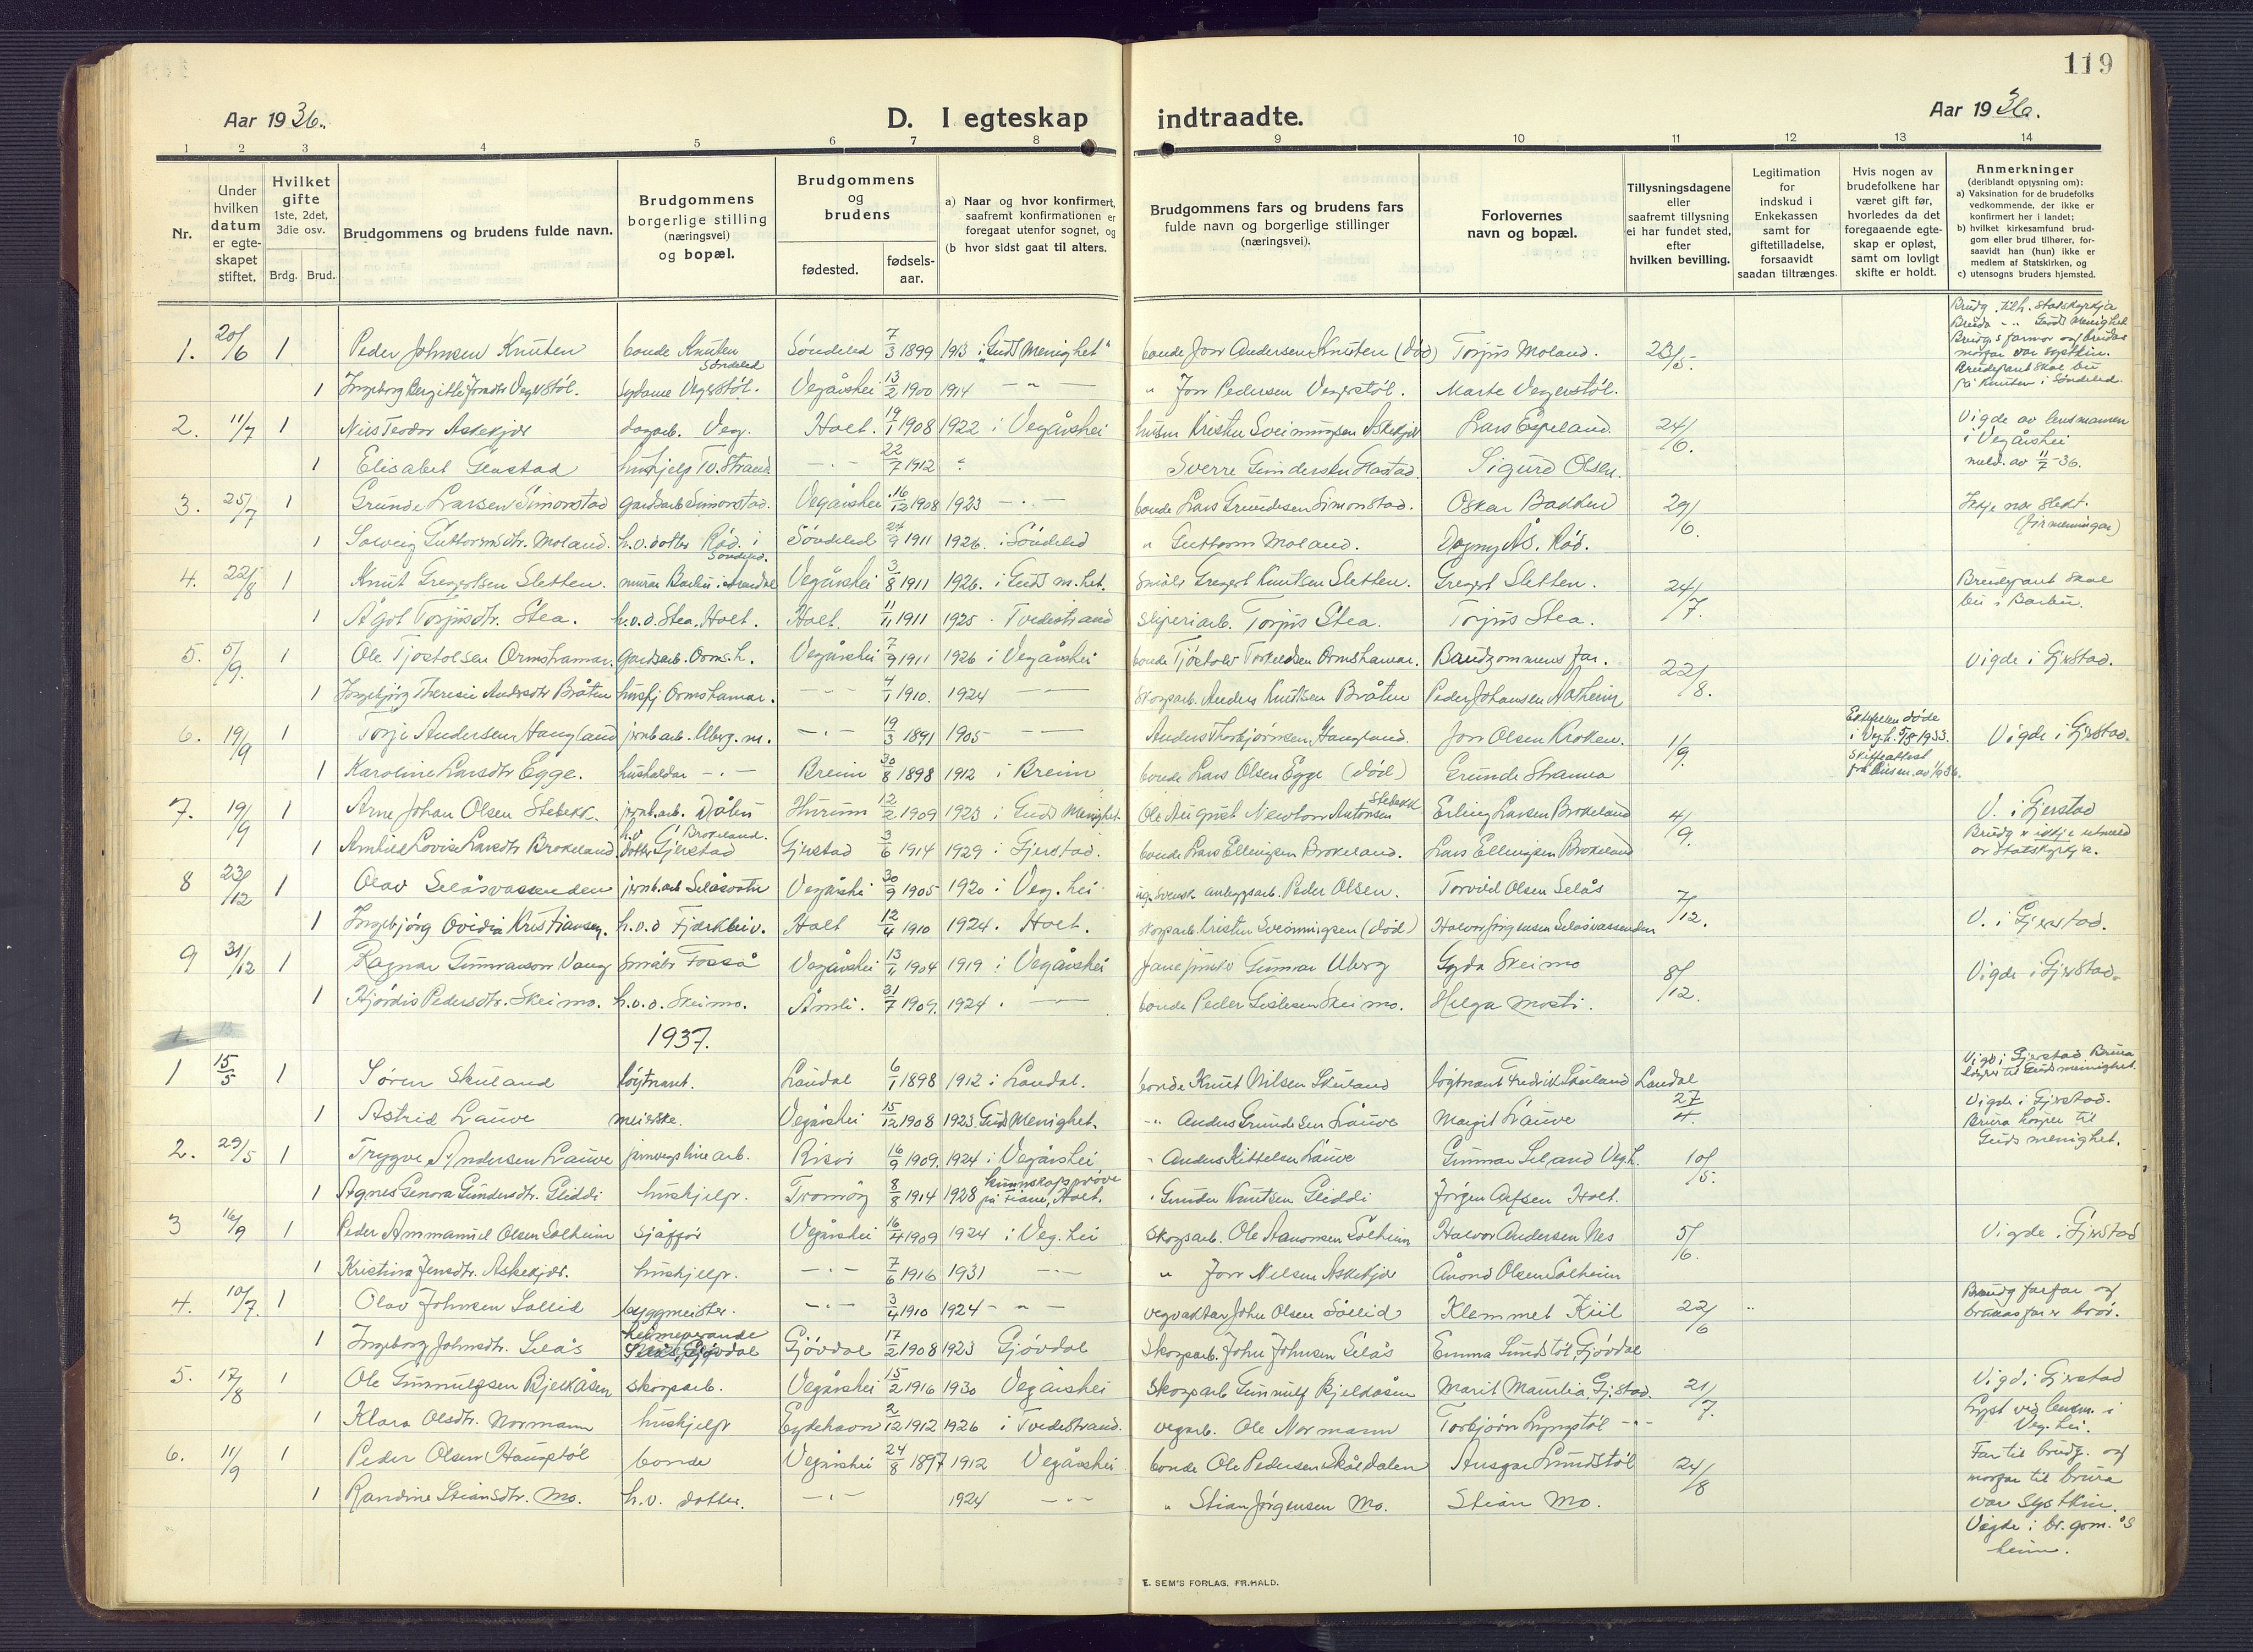 119
Aar 1936.
D. I egteskap indtraadte.
Aar 1936.
1 2 3 4 5 6 7 8 9 10 11 12 13 14
Nr.
Under hvilken datum er egte-skapet stiftet.
Hvilket gifte 1ste, 2det, 3die osv.
Brdg. Brud.
Brudgommens og brudens fulde navn.
Brudgommens borgerlige stilling (næringsvei) og bopæl.
Brudgommens og brudens
fødested.
fødsels-aar.
a) Naar og hvor konfirmert, saafremt konfirmationen er foregaat utenfor sognet, og
(b hvor sidst gaat til alters.
Brudgommens fars og brudens fars fulde navn og borgerlige stillinger (næringsvei).
Forlovernes navn og bopæl.
Tillysningsdagene eller saafremt tillysning ei har fundet sted, efter hvilken bevilling.
Legitimation for indskud i Enkekassen samt for giftetilladelse, forsaavidt saadan tiltrænges.
Hvis nogen av brudefolkene har været gift før, hvorledes da det foregaaende egte-skap er opløst, samt om lovligt skifte er holdt.
Anmerkninger (deriblandt opjysning om):
a) Vaksination for de brudefolks vedkommende, der ikke er konfirmert her i landet;
b) hvilket kirkesamfund brud-gom eller brud tilhører, for-saavidt han (hun) ikke er medlem af Statskirken, og
c) utensogns bruders hjemsted.
1. 20/6 1 Peder Johnsen Knuten bonde Knuten Søndeled Søndeled 7/3 1899 1913 i "Guds Menighet" bonde Jon Andersen Knuten (død) Torjus Moland. 23/5. Brudg. tilh. Statskyrkja Bruda - " - Guds Menighet
1 Ingeborg Bergitte Jonsdtr Vegerstøl. Sydame Vegerstøl. Vegårshei 13/2 1900 1914 - " - " Jon Pedersen Vegerstøl. Marte Vegerstøl. på Knuten i Søndeled.
2. 11/7 1 Nils Teodor Askekjær dagarb. Veg. Holt. 19/1 1908 1922 i Vegårshei Kristen Sveinungsen Askekjær Lars Espeland. 24/6. Vigde av lensmannen i Vegårshei
1 Elisabet Glastad hushjelp Tv. Strand - " - 22/7 1912 Sverre Gundersen Glastad. Sigurd Olsen. meld. av 11/7-36.
3. 25/7 1 Grunde Larsen Simonstad gardsarb Simonstad. Vegårshei 16/12 1908 1923 - " - bonde Lars Grundesen Simonstad. Oskar Bakken 29/6. Ikkje nær slekt. (firmenningar)
1 Solveig Guttormsdtr. Moland. h.v. dotter Rød. i Søndeled. Søndeled 24/9 1911 1926. i Søndeled " Guttorm Moland. Dagny Rød.
4. 22/8 1 Knut Gregertsen Sletten. murar Barbu i Arendal Vegårshei 3/8 1911 1926. i Guds m.het. småbr Gregert Knutsen Sletten. Gregert Sletten. 24/7. Brudeparet skal bu i Barbu.
1 Ågot Torjusdtr. Stea. h.v.d. Stea. Holt. Holt. 11/11 1911 1925 . Tvedestrand sliperiarb. Torjus Stea. Torjus Stea.
5. 5/9. 1 Ole Tjøstolsen Ormshamar. Gardsarb. Orms.h. Vegårshei 7/9 1911 1926 i Vegårshei bonde Tjøstolv Torkeldsen Ormshamar. Brudgommens far. 22/8. Vigde i Gjerstad.
1 Ingebjørg Theresie Andersdtr Bråten hushj Ormshamar. - " - 4/1 1910. 1924 - " - skogsarb. Anders Knutsen Bråten Peder Johansen Aaheim
6. 19/9 1 Torje Andersen Haugland jernb arb. Uberg. m. - " - 19/3 1891 1905 - " - Anders Thorbjørnsen Haugland. Jon Olsen Kroken. 1/9. Ektefellen døde i Veg.h. 5/8 1933. Skifteattest Vigde i Gjerstad.
1 Karoline Larsdtr Egge. husholdar - " - Breim 30/8 1898 1912 i Breim bonde Lars Olsen Egge (død) Grunde Stramea
7. 19/9 1 Arne Johan Olsen Stebekk. jernb.arb. Dølen Hurum 12/2 1909 1923 i Guds Menighet. Ole August Newton Antonsen Stebekk Erling Larsen Brokeland 4/9. V. i Gjerstad
1 Amalie Lovise Larsdtr Brokeland h.v. dotter Brokeland. Gjerstad Gjerstad 3/6 1914 1929 i Gjerstad. bonde Lars Ellingsen Brokeland. Lars Ellingsen Brokeland Brudg er ikkje utmeld or Statskyrkja.
8 23/12 1 Olav Selåsvassenden jernb.arb Selåsvatn Vegårshei 30/9 1905 1920 i Veg.hei anleggsarb. Peder Olsen. Torvild Olsen Selås 7/12.
1 Ingebjørg Ovidia Kristiansen. h.v.d Fjærkleiv. Holt 12/4 1910 1924. Holt. skogsarb. Kristen Sveinungsen (død) Halvor Jørgensen Selåsvassenden V. i Gjerstad.
9 31/12 1 Ragnar Gunnarson Vang småbr Fosså Vegårshei 13/1 1904 1919 i Vegårshei Gunnar Uberg Gyda Skeimo 8/12. Vigde i Gjerstad.
1 Hjørdis Pedersdtr. Skeimo. h.v.d. Skeimo. Åmli. 31/7 1909. 1924 . - " - bonde Peder Gislesen Skeimo. Helga Mosti.
1937.
1 15/5 1 Søren Skuland løytnant. Laudal 6/1 1898 1912 i Laudal. bonde Knut Nilsen Skuland løytnant Fredrik Skuland Laudal 27/4. Vigd i Gjerstad. Brura høyrer til Guds menighet.
1 Astrid Lauve meierske. Vegårshei 15/12 1908 1923 Guds Menighet. - " - Anders Grundesen Lauve Margit Lauve Vigde i Gjerstad. Brura høyrer til Guds menighet.
2. 29/5 1 Trygve Andersen Lauve jernvegslinearb. Risør 16/9 1909. 1924 i Vegårshei " Anders Kittelsen Lauve Gunnar Seland Veg.h. 10/5.
1 Agnes Genora Gundersdtr. Gliddi hushjelp. Tromøy 8/8 1914 1928 kunnskapsprøve på Fiane, Holt. " Gunder Knutsen Gliddi Jørgen Alfsen Holt.
3 16/9 1 Peder Ammanuel Olsen Solheim sjåfør Vegårshei 16/4 1909 1924 i Veg.hei skogsarb. Ole Aanonsen Solheim Halvor Andersen Nes 5/6. Vigde i Gjerstad
1 Kristina Jensdtr. Askekjær. hushjelp. - " - 7/6 1916 1931 - " - " Jon Nilsen Askekjær Ånond Olsen Solheim
4. 10/7 1 Olav Johnsen Sollid byggmeister. - " - 3/4 1910 1924 - " - vegvaktar John Olsen Sollid Klemmet Kiil 22/6 " Brudg farfar og bruras far er brør.
1 Ingeborg Johnsdtr. Selås heimeverande Selås, Gjøvdal Gjøvdal 17/2 1908 1923 Gjøvdal Skogsarb. John Johnsen Selås Emma Sundstøl, Gjøvdal
5. 17/8 1 Ole Gunnulfsen Bjelkåsen skogsarb. Vegårshei 15/2 1916 1930 Vegårshei Skogsarb Gunnulf Bjelkåsen Marit Maurlia Gj.stad. 21/7. Vigd i Gjerstad
1 Klara Olsdtr. Normann hushjelp Eydehavn 2/12 1912 1926 i Tvedestrand. vegarb. Ole Normann Torbjørn Lyngstøl - " - Lyst ved lensm. i Veg.hei.
6. 11/9 1 Peder Olsen Haugstøl bonde Vegårshei 24/8 1897 1912 Vegårshei bonde Ole Pedersen Skåldalen Ansgar Sundstøl 24/8 Far til brudg. og morfar til brura var systkin.
1 Randine Stiansdtr. Mo. h.v. dotter. - " - 1924 - " - " Stian Jørgensen Mo. Stian Mo. Vigde i br.gom.'s heim.
E. SEM'S FORLAG, FR.HALD.